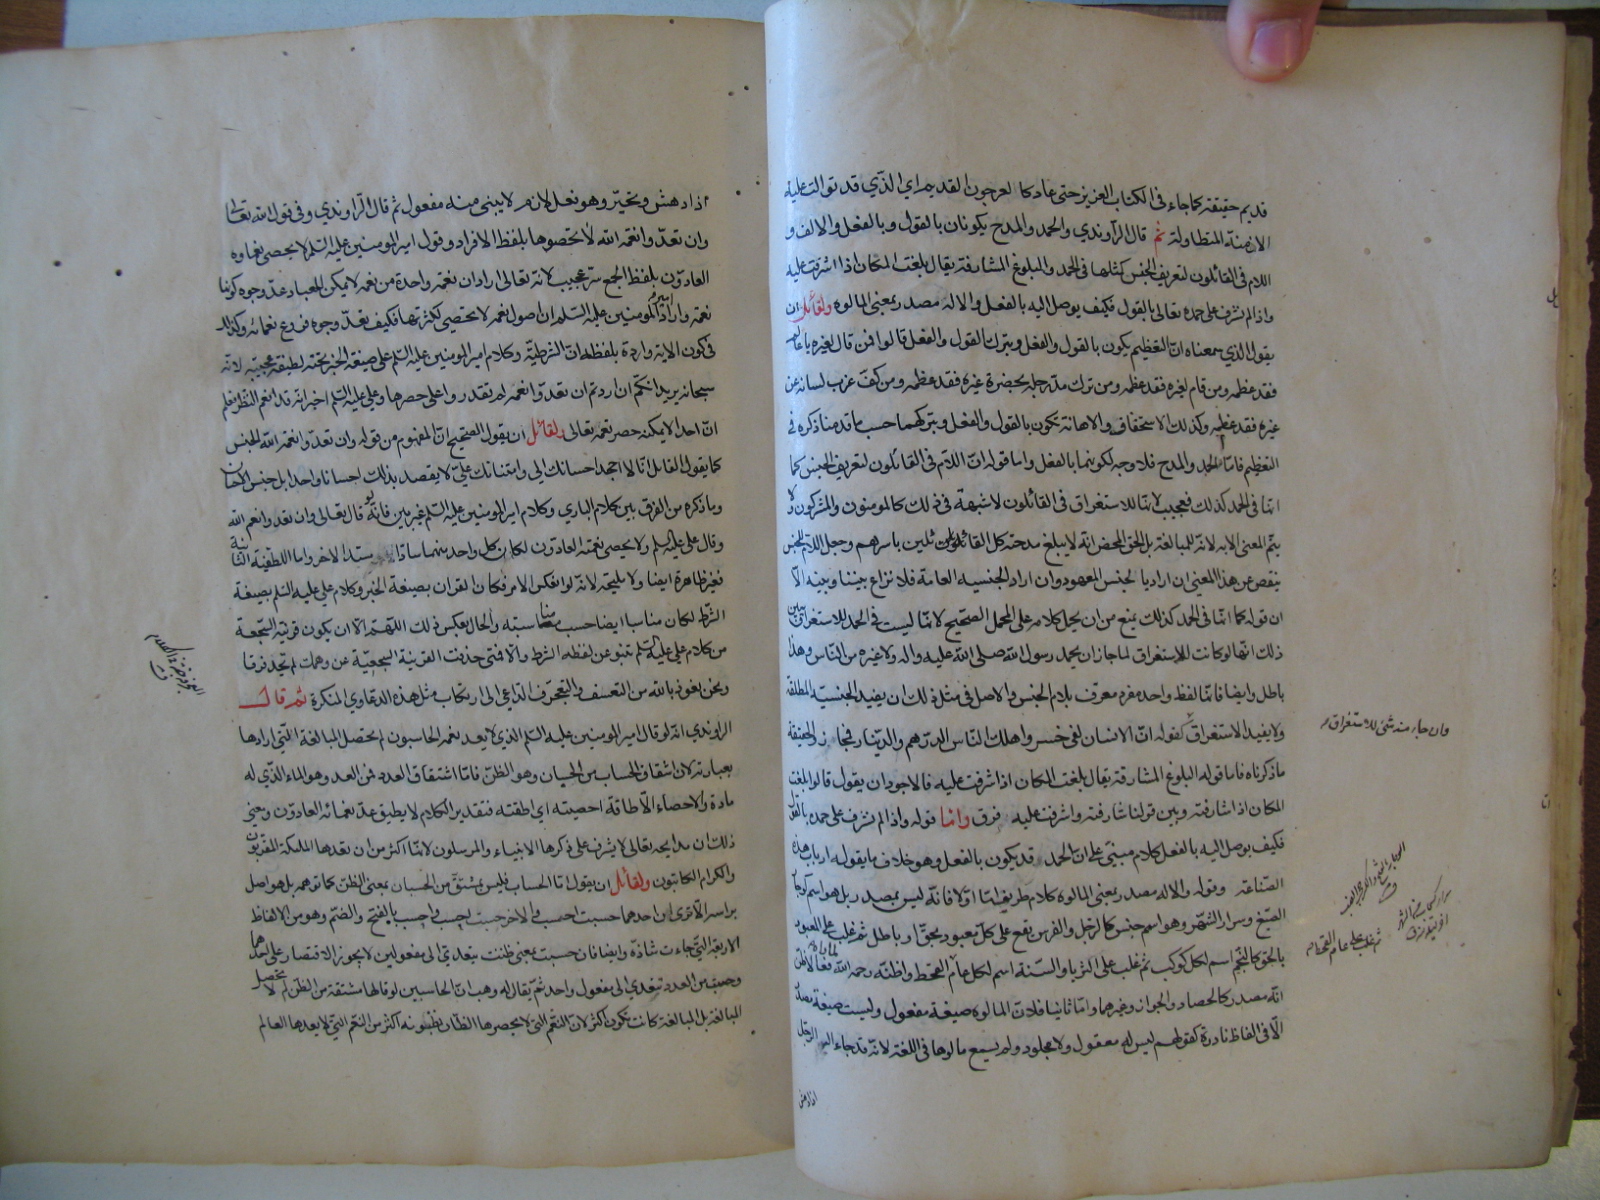 قديم حقيقته كما جاء فى الكتاب العزيز حتى عاد كالعرجون القديم اى الذّي قد توالت عليه
الازمنة المتطاولة ثم قال الراوندي والحمد والمدح يكونان بالقول وبالفعل والالف و
اللام فى القائلون لتعريف الجنس كمثلها فى الحمد والبلوغ المشارفة يقال بلغت المكان اذا اشرفت عليه
واذا لم تشرف على حمده تعالى بالقول فكيف يوصل اليه بالفعل والاله مصدر بمعنى المالوه ولقائل ان
يقول الذي سمعناه ان التعظيم يكون بالقول والفعل وبترك القول والفعل قالوا فمن قال لغيره يا عالم
فقد عظمه ومن قام لغيره فقد عظمه ومن ترك مد رجله بحضرة غيره فقد عظمه ومن كفّ غرب لسانه عن
غيره فقد عظمه وكذلك الاستخفاف والاهانة تكون بالقول والفعل وبتركهما حسب ما قدمنا ذكره فى
التعظيم فامّا الحمد والمدح فلا وجه لكونهما بالفعل واما قوله انّ اللام فى القائلون لتعريف الجنس كما
انها فى الحمد كذلك فعجيب لانها للاستغراق فى القائلون لا شبهة فى ذلك كالمومنون والمشركون ولا
يتمّ المعنى الا به لانه للمبالغة بل الحق المحض انه لا يبلغ مدحته كل القائلون باسرهم وجعل اللام للجنس
ينقص عن هذا المعنى ان اراد بالجنس المعهود وان اراد الجنسيه العامة فلا نزاع بيننا وبينه الّا
ان قوله كما انّها فى الحمد كذلك يمنع من ان يحمل كلامه على المحمل الصحيح لانها ليست فى الحمد للاستغراق يبين
ذلك انها لو كانت للاستغراق لما جاز ان يحمد رسول الله صلى الله عليه واله ولا غيره من الناس وهذا
باطل وايضا فانها لفظ واحد مفرد معرف بلام الجنس والاصل فى مثل ذلك ان يفيد الجنسيّه المطلقة
ولا يفيد الاستغراق كقوله انّ الانسان لفى خسر واهلك الناس الدرهم والدينار فمجاز والحقيقة
وان جاء منه شئ للاستغراق
ما ذكرناه فاما قوله البلوغ المشارفة يقال بلغت المكان اذا اشرفت عليه فالاجود ان يقول قالوا بلغت
المكان اذا شارفته وبين قولنا شارفته واشرفت عليه فرق وامّا قوله واذا لم نشرف على حمده بالقول
فكيف يوصل اليه بالفعل كلام مبنيّ على انّ الحمد قد يكون بالفعل وهو خلاف ما يقوله ارباب هذه
الصّناعة وقوله والاله مصدر بمعنى المالوه كلام طريف امّا اولا فانه ليس بمصدر بل هو اسم كوجار
الضبع وسرار الشهر وهو اسم جنس كالرجل والفرس يقع على كلّ معبود بحقّ او باطل ثم غلب على المعبود
بالحق كالنّجم اسم لكل كوكب ثم غلب على الثريا والسّنة اسم لكل عام القحط واظنّه رحمه الله لما راه فعالا ظنّ
ثم غلب على عام القحط
انّه مصدر كالحصاد والجواز وغيرهما وامّا ثانيا فلانّ المالوه صيغة مفعول وليست صيغة مصدر
الّا فى الفاظ نادرة كقولهم ليس له معقول ولا مجلود ولم يسمع مالوها فى اللغة لانّه قد جاء اله الرجل
اذا دهش
اذا دهش وتحيّر وهو فعل لازم لا يبنى منه مفعول ثم قال الرّاوندي وفى قول الله تعالى
وان تعدّوا نعمه الله لا تحصوها بلفظ الافراد وقول امير المومنين عليه السّلم لا يحصى نعماوه
العادّون بلفظ الجمع سرّ عجيب لانّه تعالى اراد ان نعمه واحدة من نعمه لا يمكن العباد عدّ وجوه كونها
نعمه واراد امير المومنين عليه السّلم ان اصول نعمه لا تحصى لكثرتها فكيف يعدّ وجوه فروع نعمائه وكذلك
فى كون الاية واردة بلفظه ان الشرطيّة وكلام امير المومنين عليه السّلم على صيغة الخبر تحته لطيفة عجيبة لانّه
سبحانه يريد انكم ان اردتم ان تعدوا نعمه لم تقدروا على حصرها وعلي عليه السّلم اخبر انّه قد انعم النّظر فعلم
انّ احدا لا يمكنه حصر نعمه تعالى ولقائل ان يقول الصحيح انّ المفهوم من قوله وان تعدّوا نعمة الله الجنس
كما يقول القايل انا لا اجحد احسانك الي وامتنانك عليّ لا يقصد بذلك احسانا واحدا بل جنس الاحسان
وما ذكره من الفرق بين كلام الباري وكلام امير المومنين عليه السّلم غير بيّن فانّه لو قال تعالى وان تعدوا نعم الله
وقال علي عليه السلم ولا يحصى نعمته العادّون لكان كل واحد منهما سادّا مسدّ الاخر واما اللطيفة الثانية
فغير ظاهرة ايضا ولا مليحة لانّه لو انعكس الامر فكان القران بصيغة الخبر وكلام علي عليه السّلم بصيغة
الشّرط لكان مناسبا ايضا حسب مناسبته والحال بعكس ذلك اللهمّ الّا ان يكون قرينة السّجعة
من كلام علي عليه السّلم تنبو عن لفظه الشرط والّا فمتى حذفت القرينة السجعيّة عن وهمك لم تجد فرقا
ونحن نعوذ بالله من التعسف والتعجرف الدّاعي الى ارتكاب مثل هذه الدّعاوي المنكرة ثم قال
الراوندي انّه لو قال امير المومنين عليه السّلم الذي لا يعد نعمه الحاسبون لم تحصل المبالغة التي ارادها
بعبارته لان اشتقاق الحساب من الحسبان وهو الظنّ فامّا اشتقاق العدد فمن العد وهو الماء الذّي له
مادة والاحصاء الاطاقة احصيته اى اطقته فتقدير الكلام لا يطيق عدّ نعمائه العادّون ومعنى
ذلك ان مدايحه تعالى لا يشرف على ذكرها الانبياء والمرسلون لانها اكثر من ان تعدها الملئكة المقربون
والكرام الكاتبون ولقائل ان يقول امّا الحساب فليس بمشتقّ من الحسبان بمعنى الظنّ كما توهمه بل هو اصل
براسه الا ترى ان احدهما حسبت احسب والاخر حسبت احسِب واحسَب بالفتح والضمّ وهو من الالفاظ
الاربعة التي جاءت شاذّة وايضا فان حسبت بمعنى ظننت يتعدى الى مفعولين لا يجوز الاقتصار على احدهما
وحسبت من العدد تتعدى الى مفعول واحد ثم يقال له وهب انّ الحاسبين لو قالها مشتقة من الظن لم تحصل
المبالغة بل المبالغة كانت تكون اكثر لانّ النّعم التي لا يحصرها الظانّ بظنونه اكثر من النّعم التي لا يعدها العالم